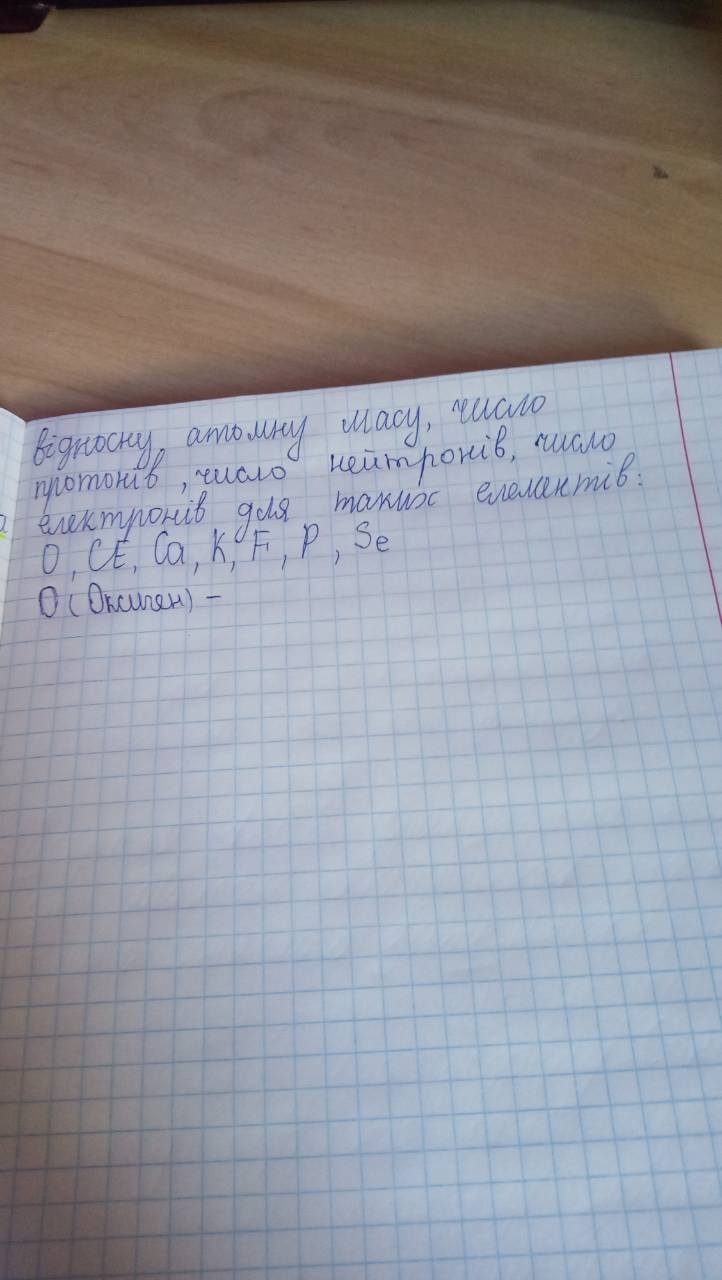 відносну атомну масу, число
протонів, число нейтронів, число
електронів для таких елементів:
O, Cl, Ca, K, F, P, Se
O (Оксиген) –